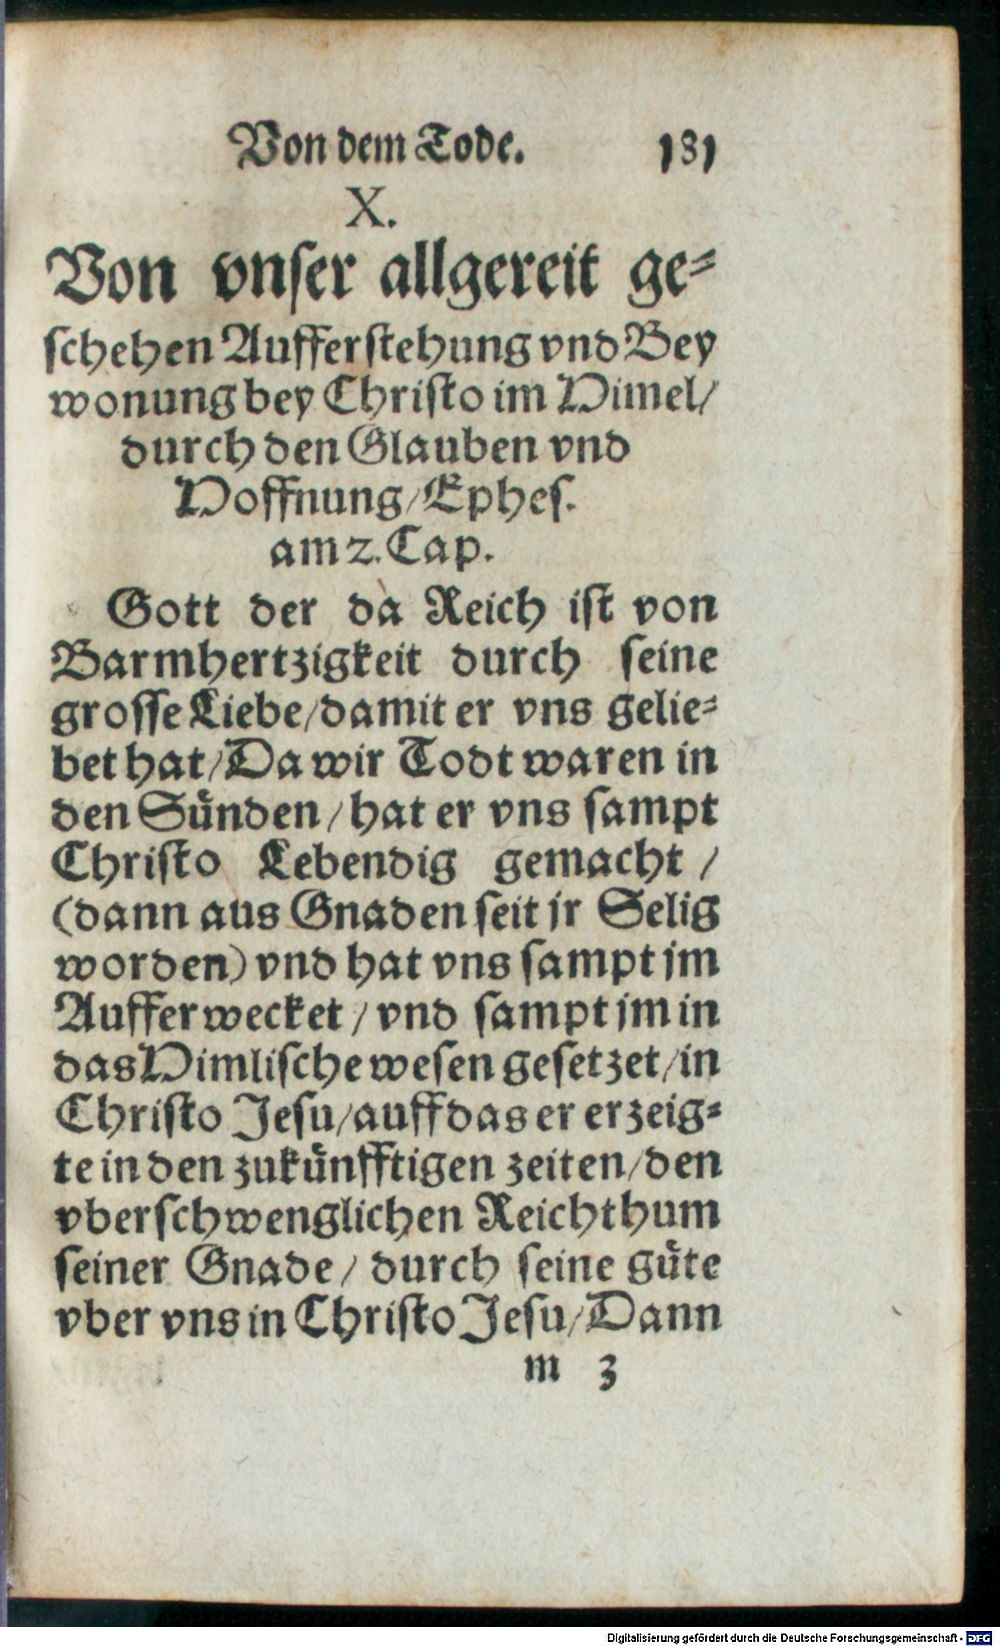 Von dem Tode. 181
X.
Von vnser allgereit ge-
schehen Aufferstehung vnd Bey
wonung bey Christo im Himel/
durch den Glauben vnd
Hoffnung/Ephes.
am 2. Cap.
Gott der da Reich ist von
Barmhertzigkeit durch seine
grosse Liebe/damit er vns gelie-
bet hat/Da wir Todt waren in
den Sünden/hat er vns sampt
Christo Lebendig gemacht /
(dann aus Gnaden seit jr Selig
worden) vnd hat vns sampt jm
Aufferwecket/vnd sampt jm in
das Himlische wesen gesetzet/in
Christo Jesu/auff das er erzeig-
te in den zukünfftigen zeiten/den
vberschwenglichen Reichthum
seiner Gnade/ durch seine güte
vber vns in Christo Jesu/Dann
m 3
Digitalisierung gefördert durch die Deutsche Forschungsgemeinschaft - DFG